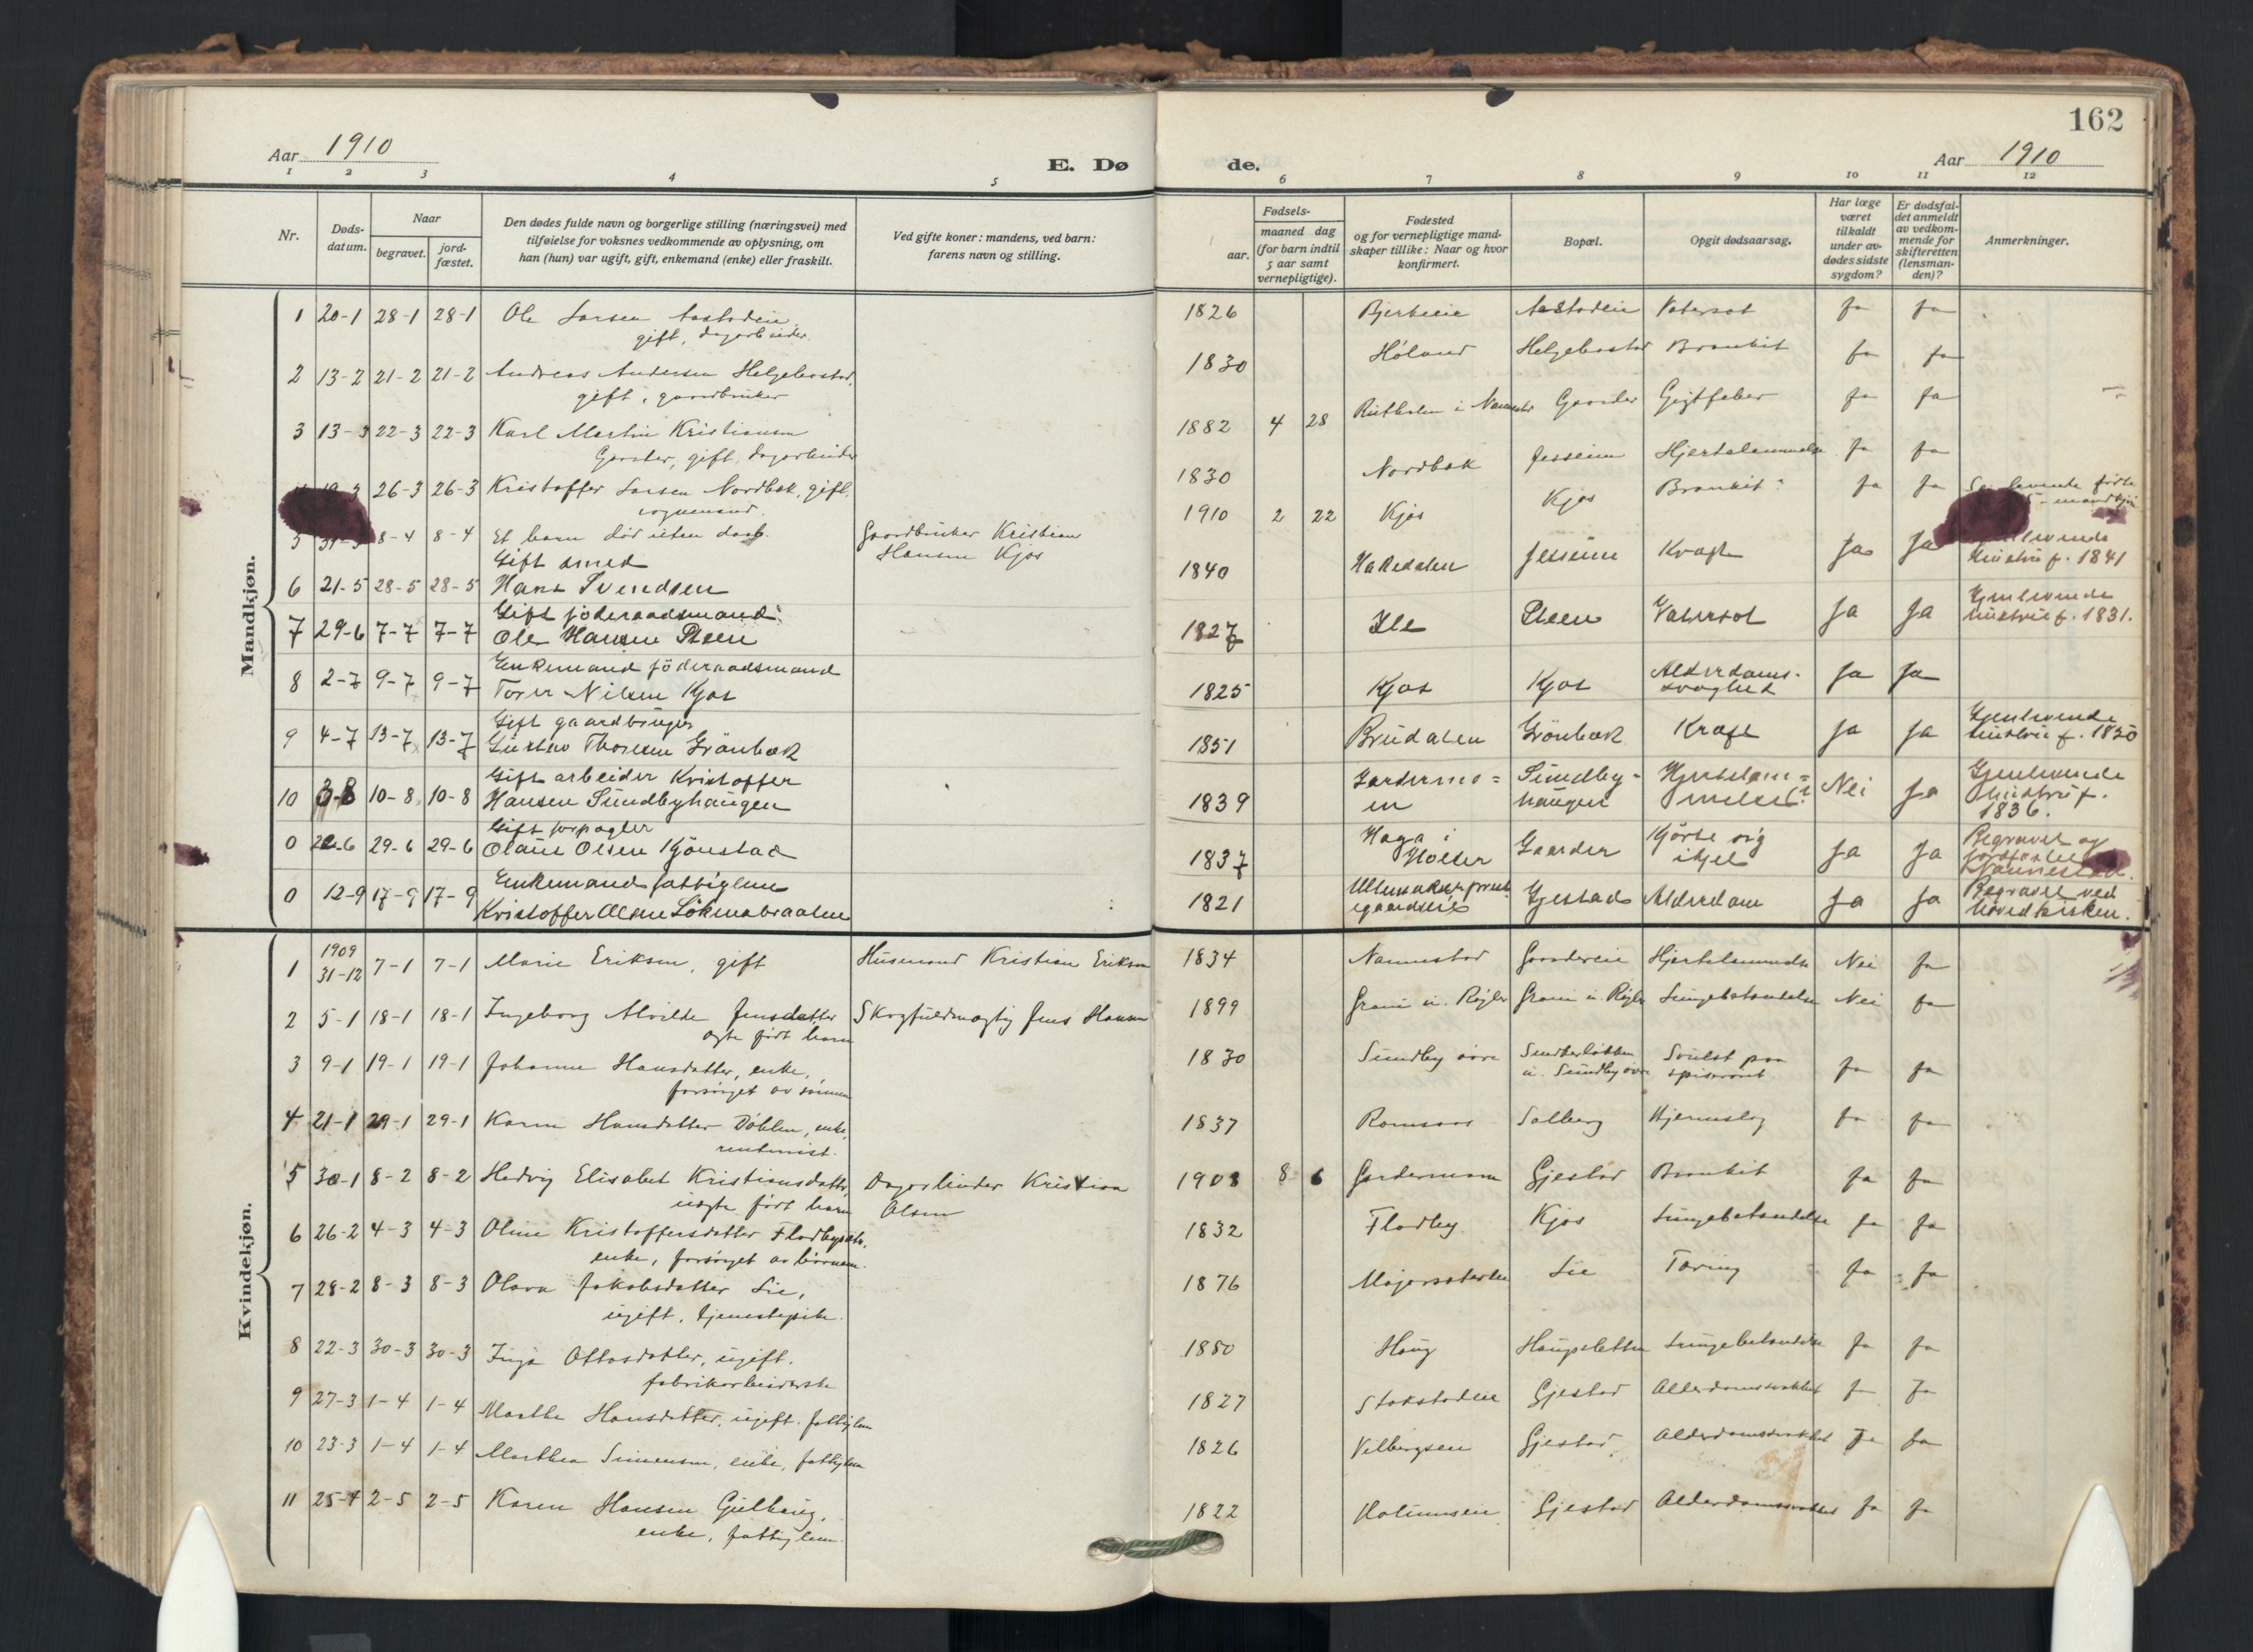 162
Aar 1910
E. Dø
de.
Aar 1910
1 2 3 4 5 6 7 8 9 10 11 12
Nr.
Døds-
datum.
Naar
begravet.
jord-
fæstet.
Den dødes fulde navn og borgerlige stilling (næringsvei) med
tilføielse for voksnes vedkommende av oplysning, om
han (hun) var ugift, gift, enkemand (enke) eller fraskilt.
Ved gifte koner: mandens, ved barn:
farens navn og stilling.
Fødsels-
aar.
maaned dag
(for barn indtil
5 aar samt
vernepligtige).
Fødested
og for vernepligtige mand-
skaper tillike: Naar og hvor
konfirmert.
Bopæl.
Opgit dødsaarsag.
Har læge
været
tilkaldt
under av-
dødes sidste
sygdom?
Er dødsfal-
det anmeldt
av vedkom-
mende for
skifteretten
(lensman-
den)?
Anmerkninger.
Mandkjøn.
1 20-1 28-1 28-1 Ole Larsen Aastadeie 1826 Bjerkeeie Aastadeie Vatersot Ja Ja
gift, dagarbeider
2 13-2 21-2 21-2 Andreas Andersen Helgebostad, 1830 Høland Helgebostad Bronkit Ja Ja
gift, gaardbruker
3 13-3 22-3 22-3 Karl Martin Kristiansen 1882 4 28 i Gaarder Gigtfeber Ja Ja
Gaarder, gift, dagarbeider
26-3 26-3 Kristoffer Larsen Nordbæk, gift, 1830 Nordbæk Jesseim Hjertelammelse Ja Ja
vognmand.
5 8-4 8-4 Et barn død uten daab. Gaardbruker Kristian 1910 2 22 Kjos Kjos Bronkit Ja Ja levende fødte
Hansen Kjos
Gift smed
6 21-5 28-5 28-5 Hans Svendsen 1840 Hakedalen Jesseim Kræft Ja Ja
hustru f. 1841
Gift föderaadsmand
7 29-6 7-7 7-7 Ole Hansen Steen 1827 Ile Steen Vatersot Ja Ja Gjenlevende
hustru f. 1831.
Enkemand föderaadsmand
8 2-7 9-7 9-7 Torer Nilsen Kjos 1825 Kjos Kjos Alderdoms-
svaghed Ja Ja
Gift gaardbruger
9 4-7 13-7 13-7 Gustav Thoresen Grönbæk 1851 Brudalen Grönbæk Kræft Ja Ja Gjenlevende
hustru f. 1850
Gift arbeider Kristoffer
10 3-8 10-8 10-8 Hansen Sundbyhaugen 1839 Gardermo=
en Sundby-
haugen Hjertelam=
melse? Nei Ja Gjenlevende
hustru f.
1836.
Gift forpagter
0 29-6 29-6 Olaus Olsen Kjönstad 1837 Haga i
Holter Gaarder Kjörte sig
ihjel Ja Ja Begravet og
jordfæstet
Nannestad.
Enkemand fattiglem
0 12-9 17-9 17-9 Kristoffer Olsen Lökmabraaten 1821 Ullensaker prest
egaardseie Gjestad Alderdom Ja Ja Begravet ved
hovedkirken.
Kvindekjøn.
1909
1 31-12 7-1 7-1 Marie Eriksen, gift Husmand Kristian Eriksen 1834 Nannestad Gaardereie Hjertelammelse Nei Ja
2 5-1 18-1 18-1 Ingeborg Alvilde Jensdatter Skogfuldmægtig Jens Hansen 1899 Lungebetændelse Nei Ja
ægte født barn
3 9-1 19-1 19-1 Johanne Hansdatter, enke, 1830 Sundby øvre u. Sundby øvre Svulst paa
spiserøret Ja Ja
forsørget av sønnen
4 21-1 29-1 29-1 Karen Hansdatter Døhlen, enke, 1837 Romsaas Solberg Hjerneslag Ja Ja
rentenist.
5 30-1 8-2 8-2 Hedvig Elisabet Kristiansdatter, Dagarbeider Kristian 1908 8 6 Gardermoen Gjestad Bronkit Ja Ja
uægte født barn Olsen
6 26-2 4-3 4-3 Oline Kristoffersdatter 1832 Flodby Kjos Lungebetændelse Ja Ja
enke, forsørget av børnene.
7 28-2 8-3 8-3 Olava Jakobsdatter Lie, 1876 Lie Tæring Ja Ja
ugift, tjenestepike.
8 22-3 30-3 30-3 Inga Ottosdatter, ugift. 1850 Haug Haugsletten Lungebetændelse Ja Ja
fabrikarbeiderske
9 27-3 1-4 1-4 Marthe Hansdatter, ugift. fattiglem 1827 Stokstadeie Gjestad Alderdomssvakhet Ja Ja
10 23-3 1-4 1-4 Marthea Simensen, enke, fattiglem 1826 Vilbergseie Gjestad Alderdomssvakhet Ja Ja
11 25-4 2-5 2-5 Karen Hansen Gulhaug, 1822 Gjestad Alderdomssvakhet Ja Ja
enke, fattiglem.